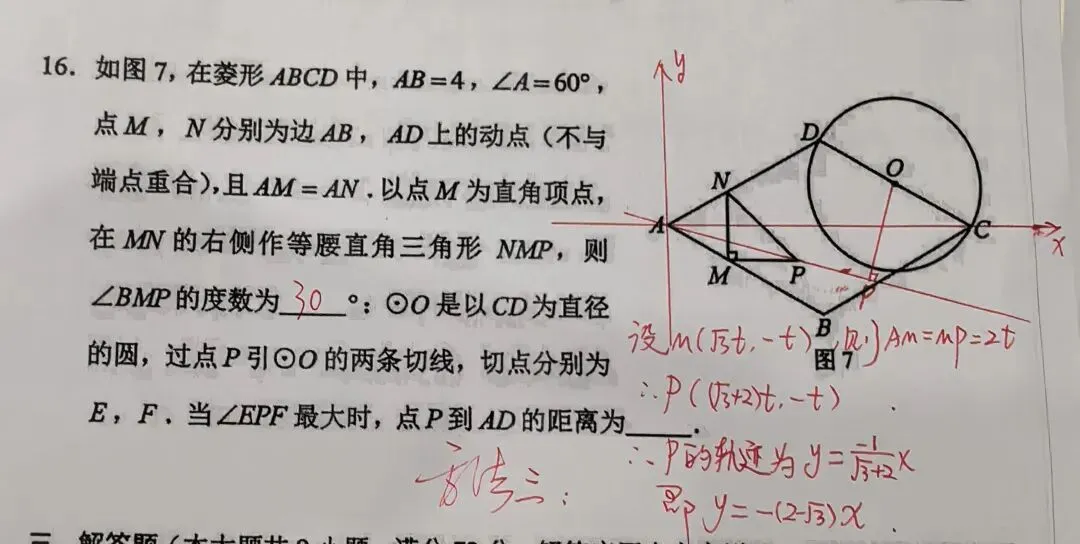 16. 如图 7, 在菱形 ABCD 中, AB=4, ∠A=60°,
点 M, N 分别为边 AB, AD 上的动点 (不与
端点重合), 且 AM=AN. 以点 M 为直角顶点,
在 MN 的右侧作等腰直角三角形 NMP, 则
∠BMP 的度数为 30 °; ⊙O 是以 CD 为直径
的圆, 过点 P 引⊙O 的两条切线, 切点分别为
E, F. 当∠EPF 最大时, 点 P 到 AD 的距离为____.
y
D
O
N
A
C
x
M
P
P
B
图 7
设M(√3t, -t), 则AM=MP=2t
∴P((√3+2)t, -t)
∴P的轨迹为 y=-1/(√3+2)x
即 y=-(2-√3)x.
方法三: